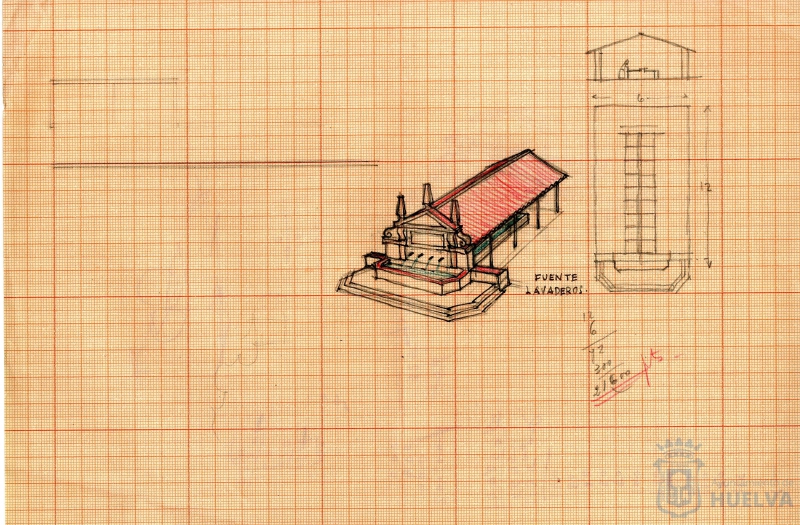 6
12
FUENTE
LAVADEROS.
12
6
72
300
21600 pts
HUELVA